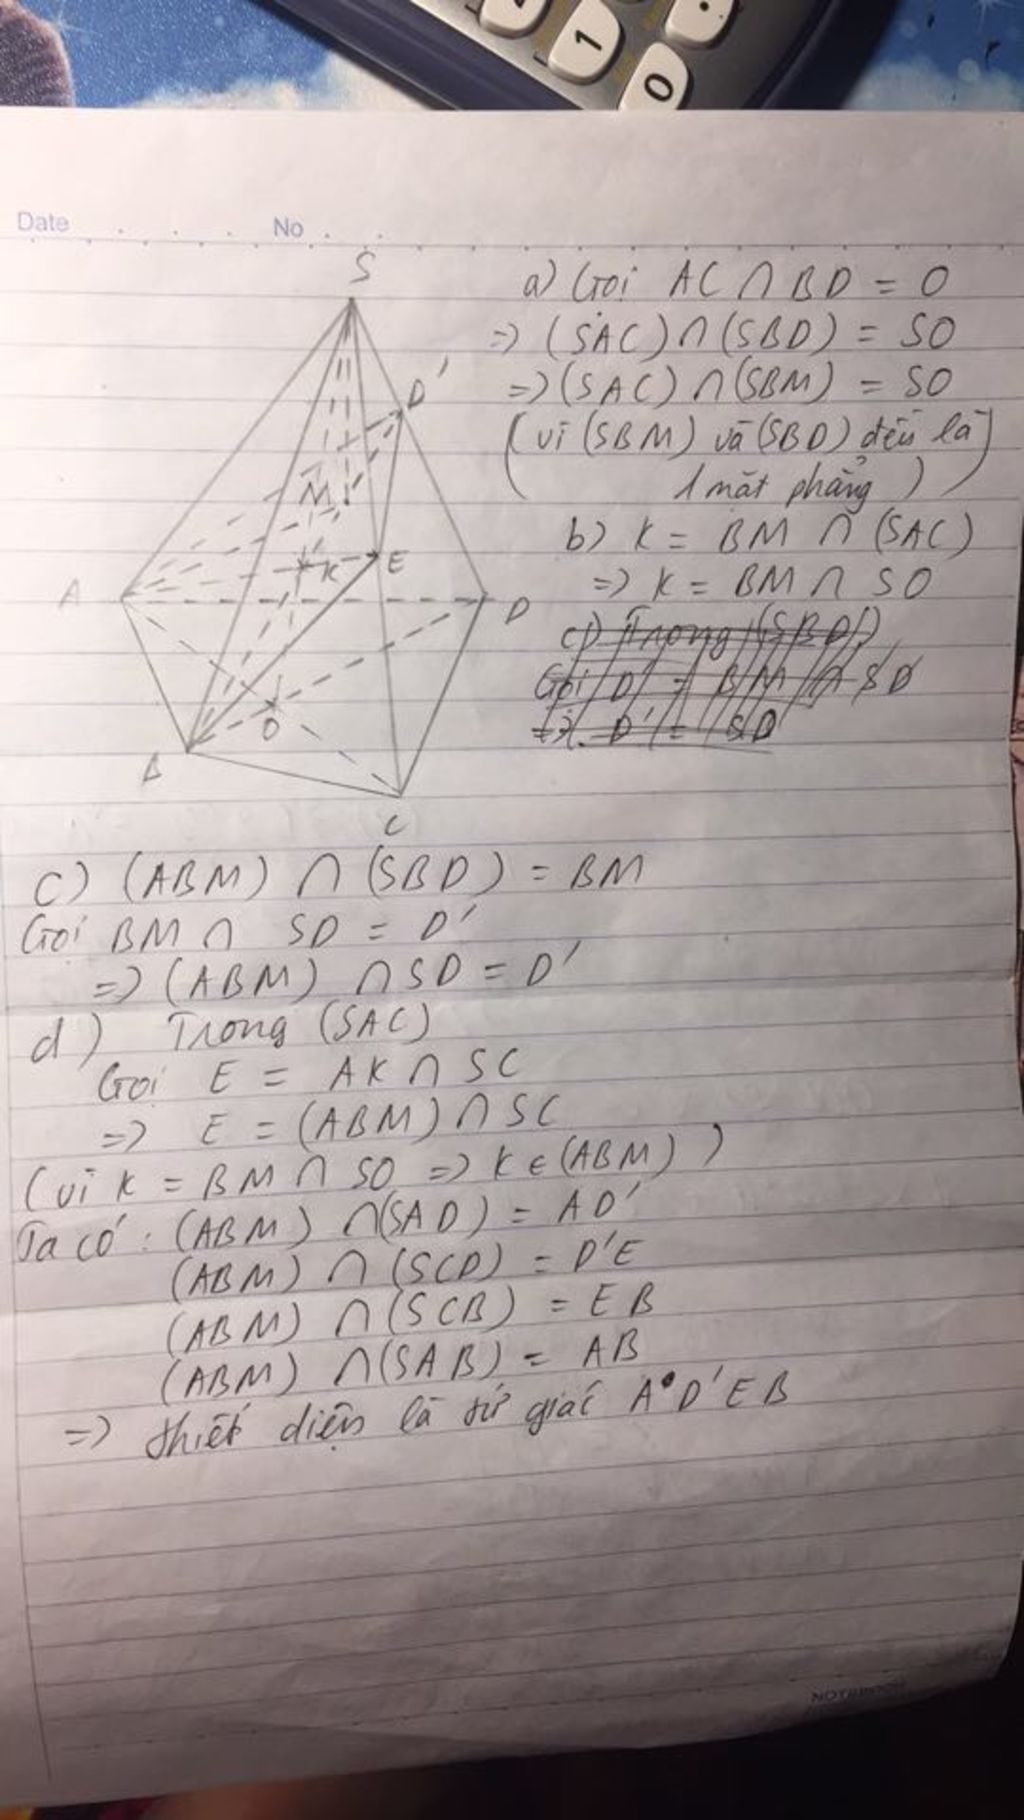 1
0
Date No
S
D'
M
K
E
A
D
O
B
C
a) Gọi AC ∩ BD = O
=> (SAC) ∩ (SBD) = SO
=> (SAC) ∩ (SBM) = SO
(vì (SBM) và (SBD) đều là
1 mặt phẳng)
b) K = BM ∩ (SAC)
=> K = BM ∩ SO
c) Trong (SBD)
Gọi D' = BM ∩ SD
=> D' = SD
c) (ABM) ∩ (SBD) = BM
Gọi BM ∩ SD = D'
=> (ABM) ∩ SD = D'
d) Trong (SAC)
Gọi E = AK ∩ SC
=> E = (ABM) ∩ SC
(vì K = BM ∩ SO => K ∈ (ABM))
Ta có: (ABM) ∩ (SAD) = AD'
(ABM) ∩ (SCD) = D'E
(ABM) ∩ (SCB) = EB
(ABM) ∩ (SAB) = AB
=> thiết diện là tứ giác AD'EB